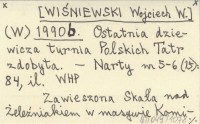 [WIŚNIEWSKI Wojciech W.]
(W) 1990b. Ostatnia dzie-
wicza turnia Polskich Tatr
zdobyta. — Narty nr 5-6 (25):
84, il. WHP
Zawieszona Skała nad
Żeleźniakiem w masywie Komi-